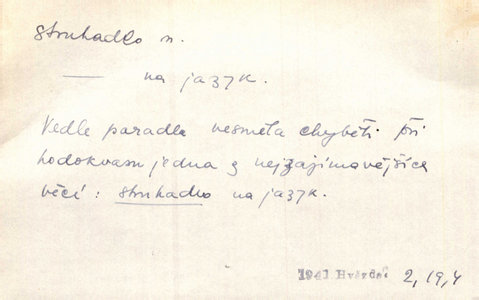 struhadlo n.
—— na jazyk.
Vedle paradla nesměla chyběti při
hodokvasu jedna z nejzajímavějších
věcí: struhadlo na jazyk.
1941 Hvězda: 2, 19, 4